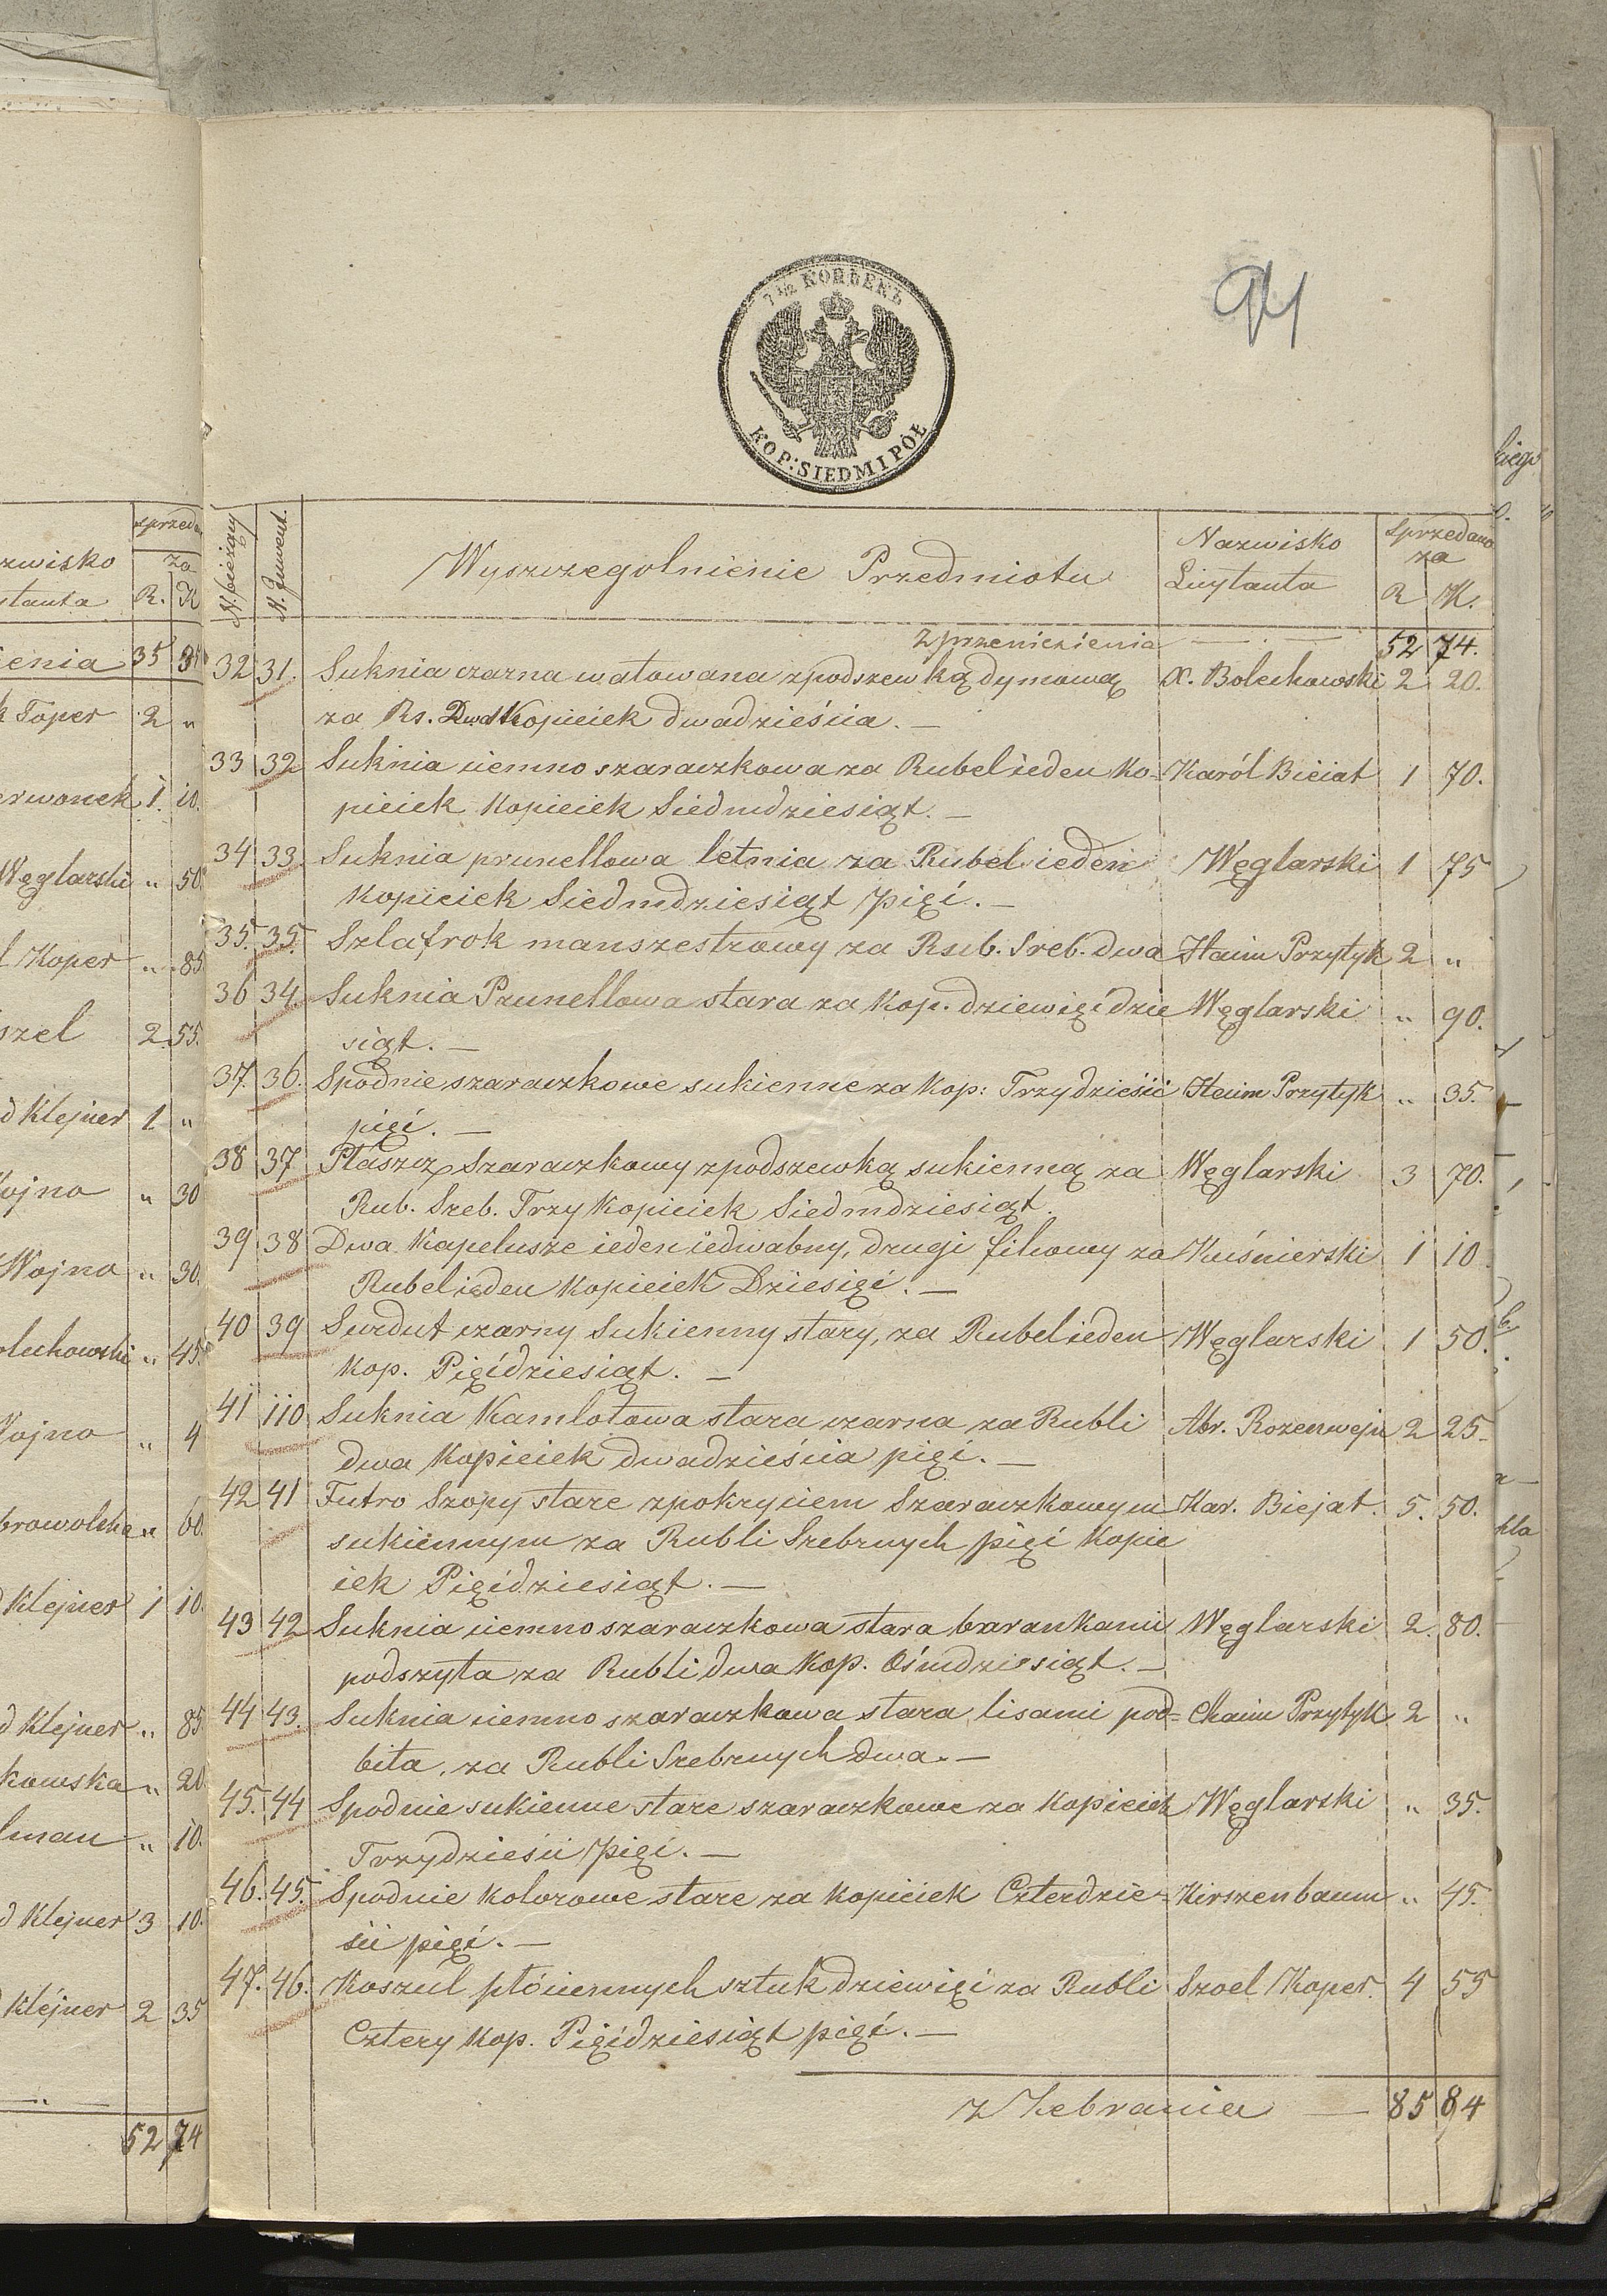 7 1/2 КОПѢЕКЪ
KOP: SIEDM I PÓŁ
94
zwisko
ytanta
sprzeda
za
R. K
ienia 35
k Toper 2 "
erwonek 1. 10.
Węglarski " 50.
l Koper " 85
szel 2 55.
d Klejner 1 "
Wojno " 30
Wojno " 30.
olechowski " 45.
Wojno " 4
browolska " 60.
d Klejner 1 10.
d Klejner " 85
kowska " 20
lman " 10.
d Klejner 3 10.
d Klejner 2 35
52 74
N. bieżący N. Inwent. Wyszczegolnienie Przedmiotu Nazwisko Licytanta Sprzedano za R K.
Z przeniesienia — . — 52 74.
32 31. Suknia czarna watowana z podszewką dymową X. Bolechowski 2 20.
za Rs. Dwa Kopieiek dwadzieścia. —
33 32 Suknia ciemno szaraczkowa za Rubel ieden Ko= Karól Bieiat 1 70.
pieiek Kopieiek Siedmdziesiąt. —
34 33. Suknia prunellowa letnia za Rubel ieden Węglarski 1 75
Kopieiek Siedmdziesiąt pięć. —
35. 35. Szlafrok manszestrowy za Rub. Sreb. dwa Haim Przytyk 2 "
36 34. Suknia Prunellowa stara za Kop. dziewięćdzie Węglarski " 90.
siąt. —
37. 36. Spodnie szaraczkowe sukienne za Kop: Trzydzieści Haim Przytyk " 35.
pięć. —
38 37 Płaszcz Szaraczkowy z podszewką sukienną za Węglarski 3 70.
Rub. Sreb. Trzy Kopieiek Siedmdziesiąt.
39 38 Dwa Kapelusze ieden iedwabny, drugi filcowy za Kuśnierski 1 10
Rubel ieden Kopieiek Dziesięć. —
40 39 Surdut czarny Sukienny stary, za Rubel ieden Węglarski 1 50.
Kop. Pięćdziesiąt. —
41 110 Suknia Kamlotowa stara czarna za Rubli Abr. Rozenwejn 2 25-
dwa Kopieiek dwadzieścia pięć. —
42 41 Futro Szopy stare z pokryciem Szaraczkowym Kar. Biejat. 5. 50.
sukiennym za Rubli Srebrnych pięć Kopie
iek Pięćdziesiąt. —
43 42 Suknia ciemno szaraczkowa stara barankami Węglarski 2. 80.
podszyta za Rubli dwa Kop. Ośmdziesiąt. —
44 43. Suknia ciemno szaraczkowa stara lisami pod= Chaim Przytyk 2 "
bita, za Rubli Srebrnych dwa. —
45. 44 Spodnie sukienne stare szaraczkowe za Kopieiek Węglarski " 35.
Trzydzieści pięć. —
46. 45. Spodnie kolorowe stare za Kopieiek Czterdzie= Kirszenbaum " 45.
ści pięć. —
47. 46. Koszul płóciennych sztuk dziewięć za Rubli Szoel Koper. 4 55
Cztery Kop. Pięćdziesiąt pięć. —
z Zebrania — 85 84